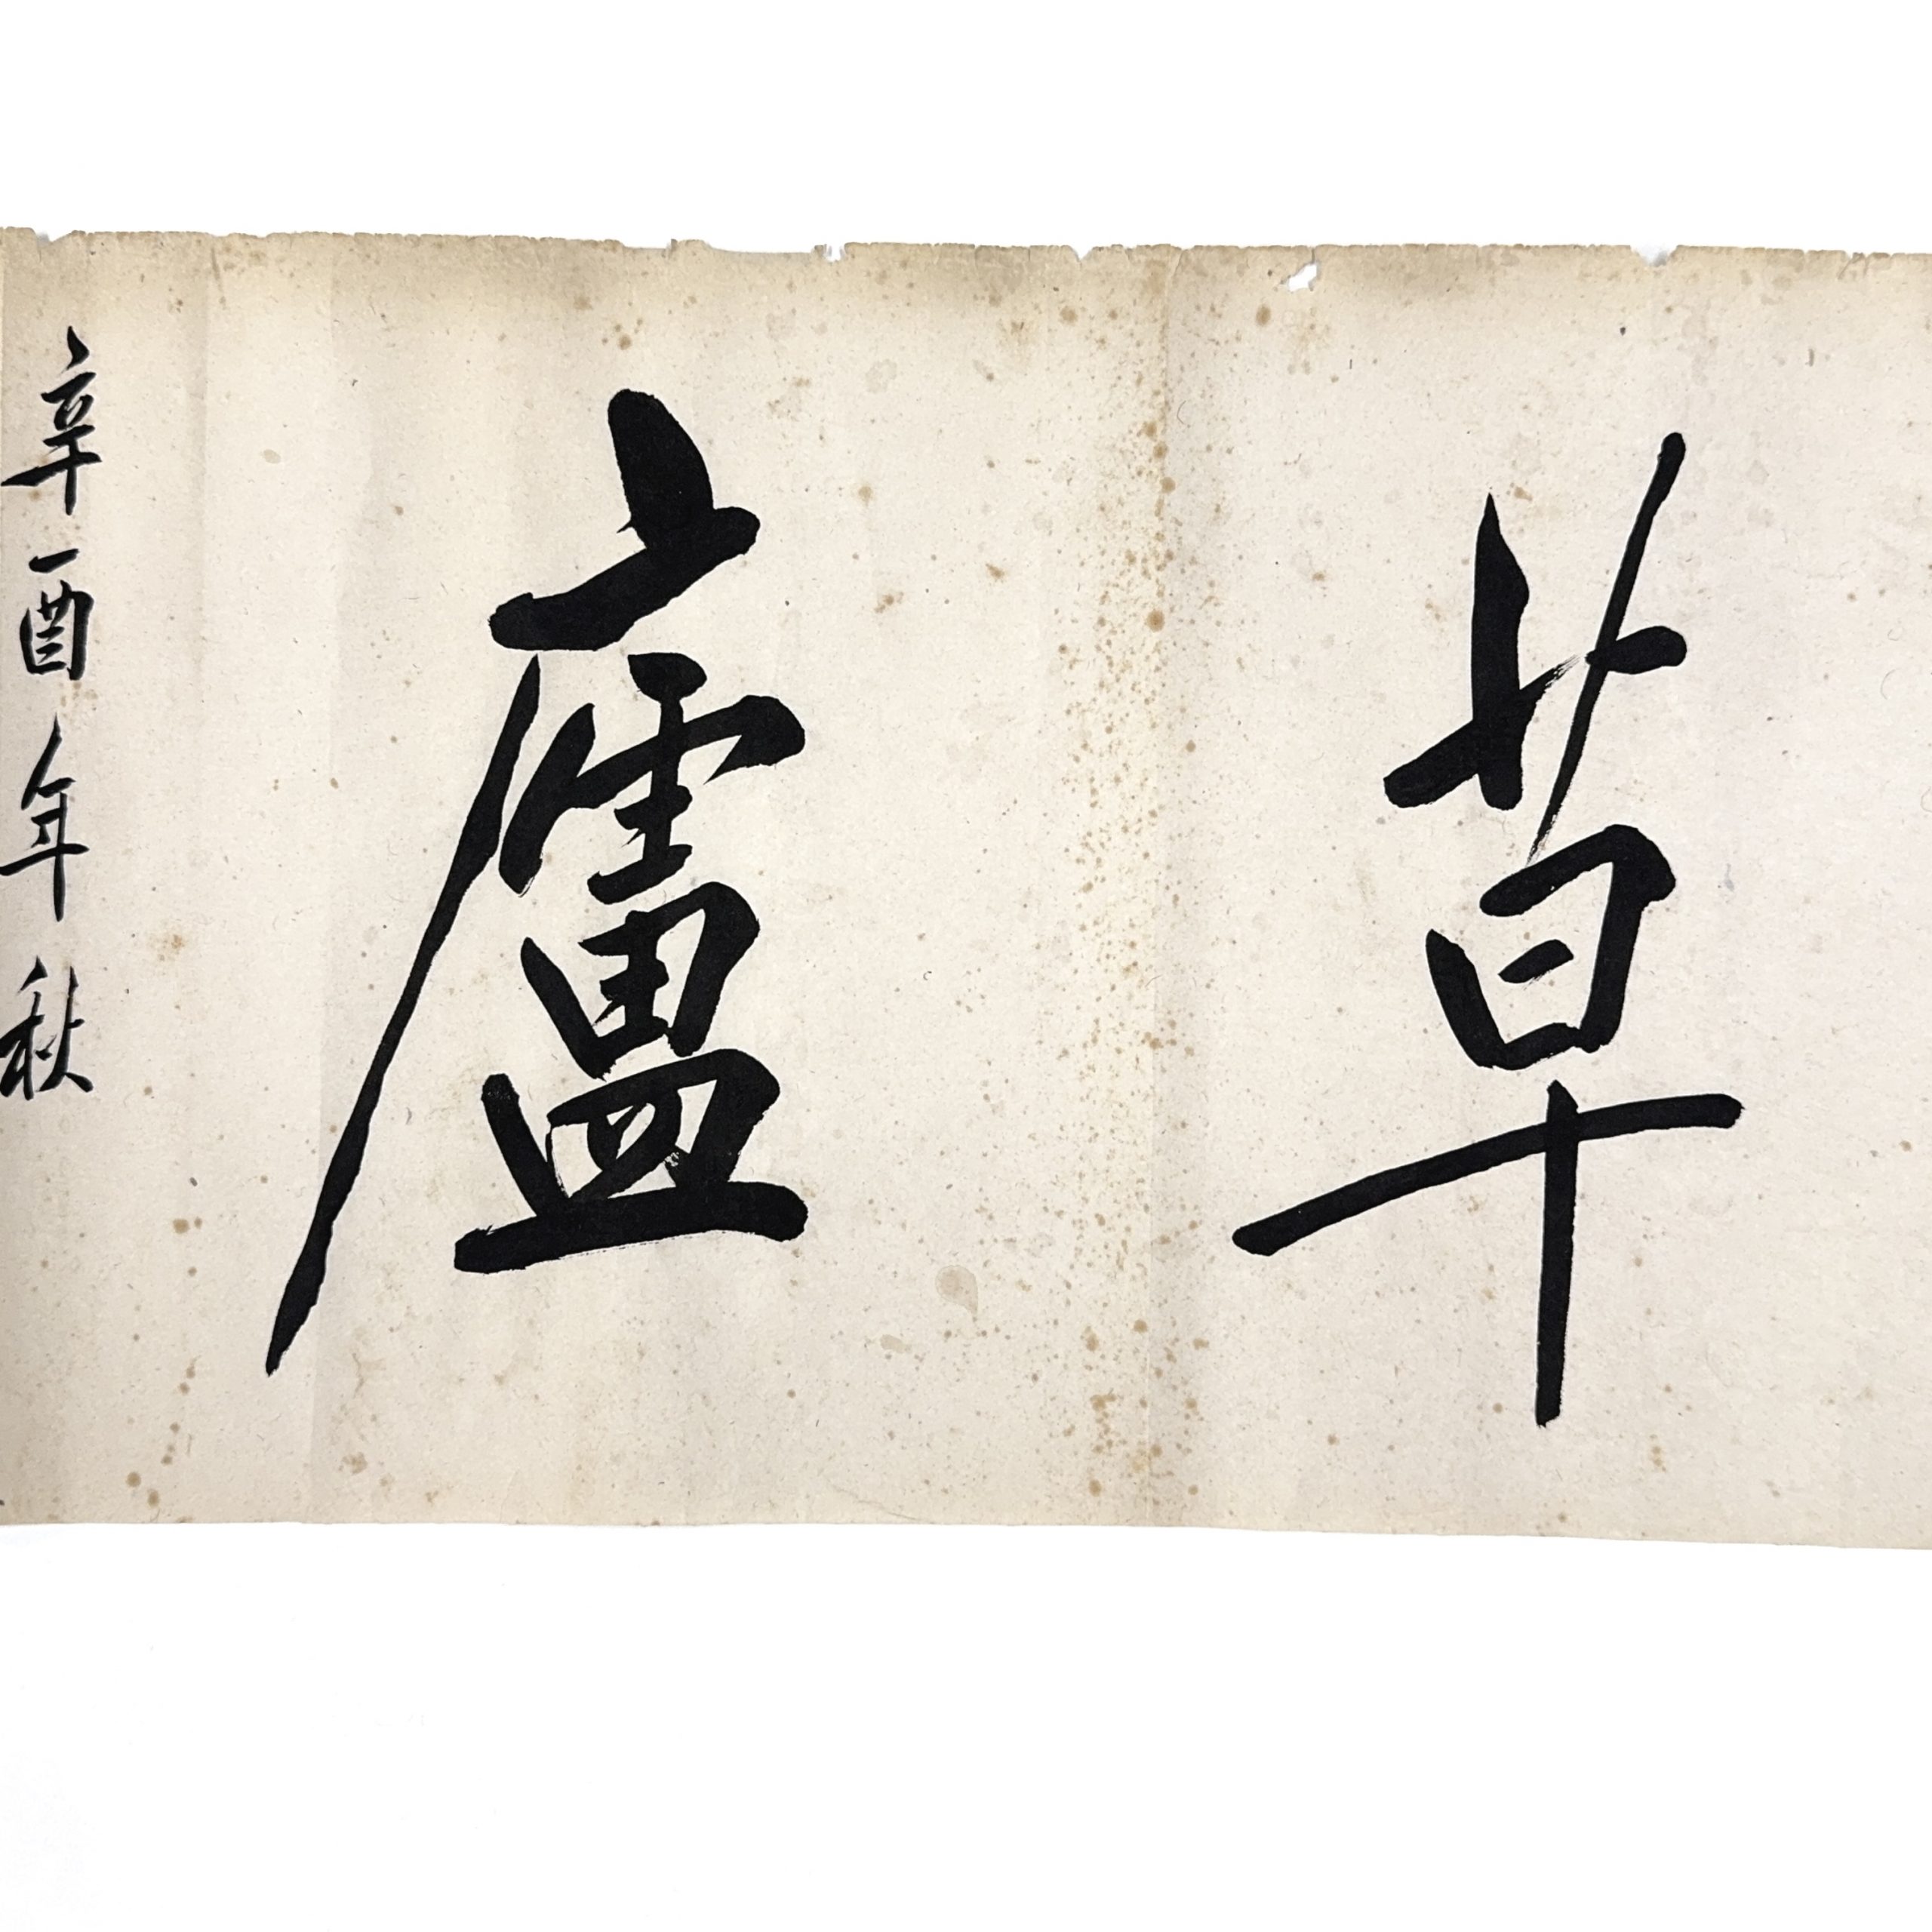 草廬
辛酉年秋